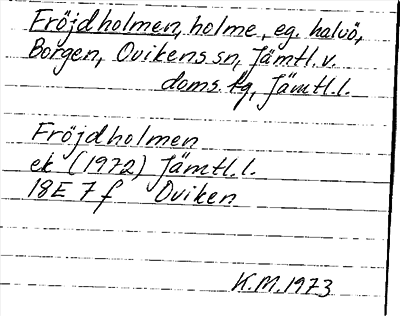 Fröjdholmen, holme, eg. halvö,
Borgen, Ovikens sn, Jämtl. v.
doms. tg, Jämtl. l.
Fröjdholmen
ek (1972) Jämtl. l.
18E 7 f Oviken
K.M. 1973